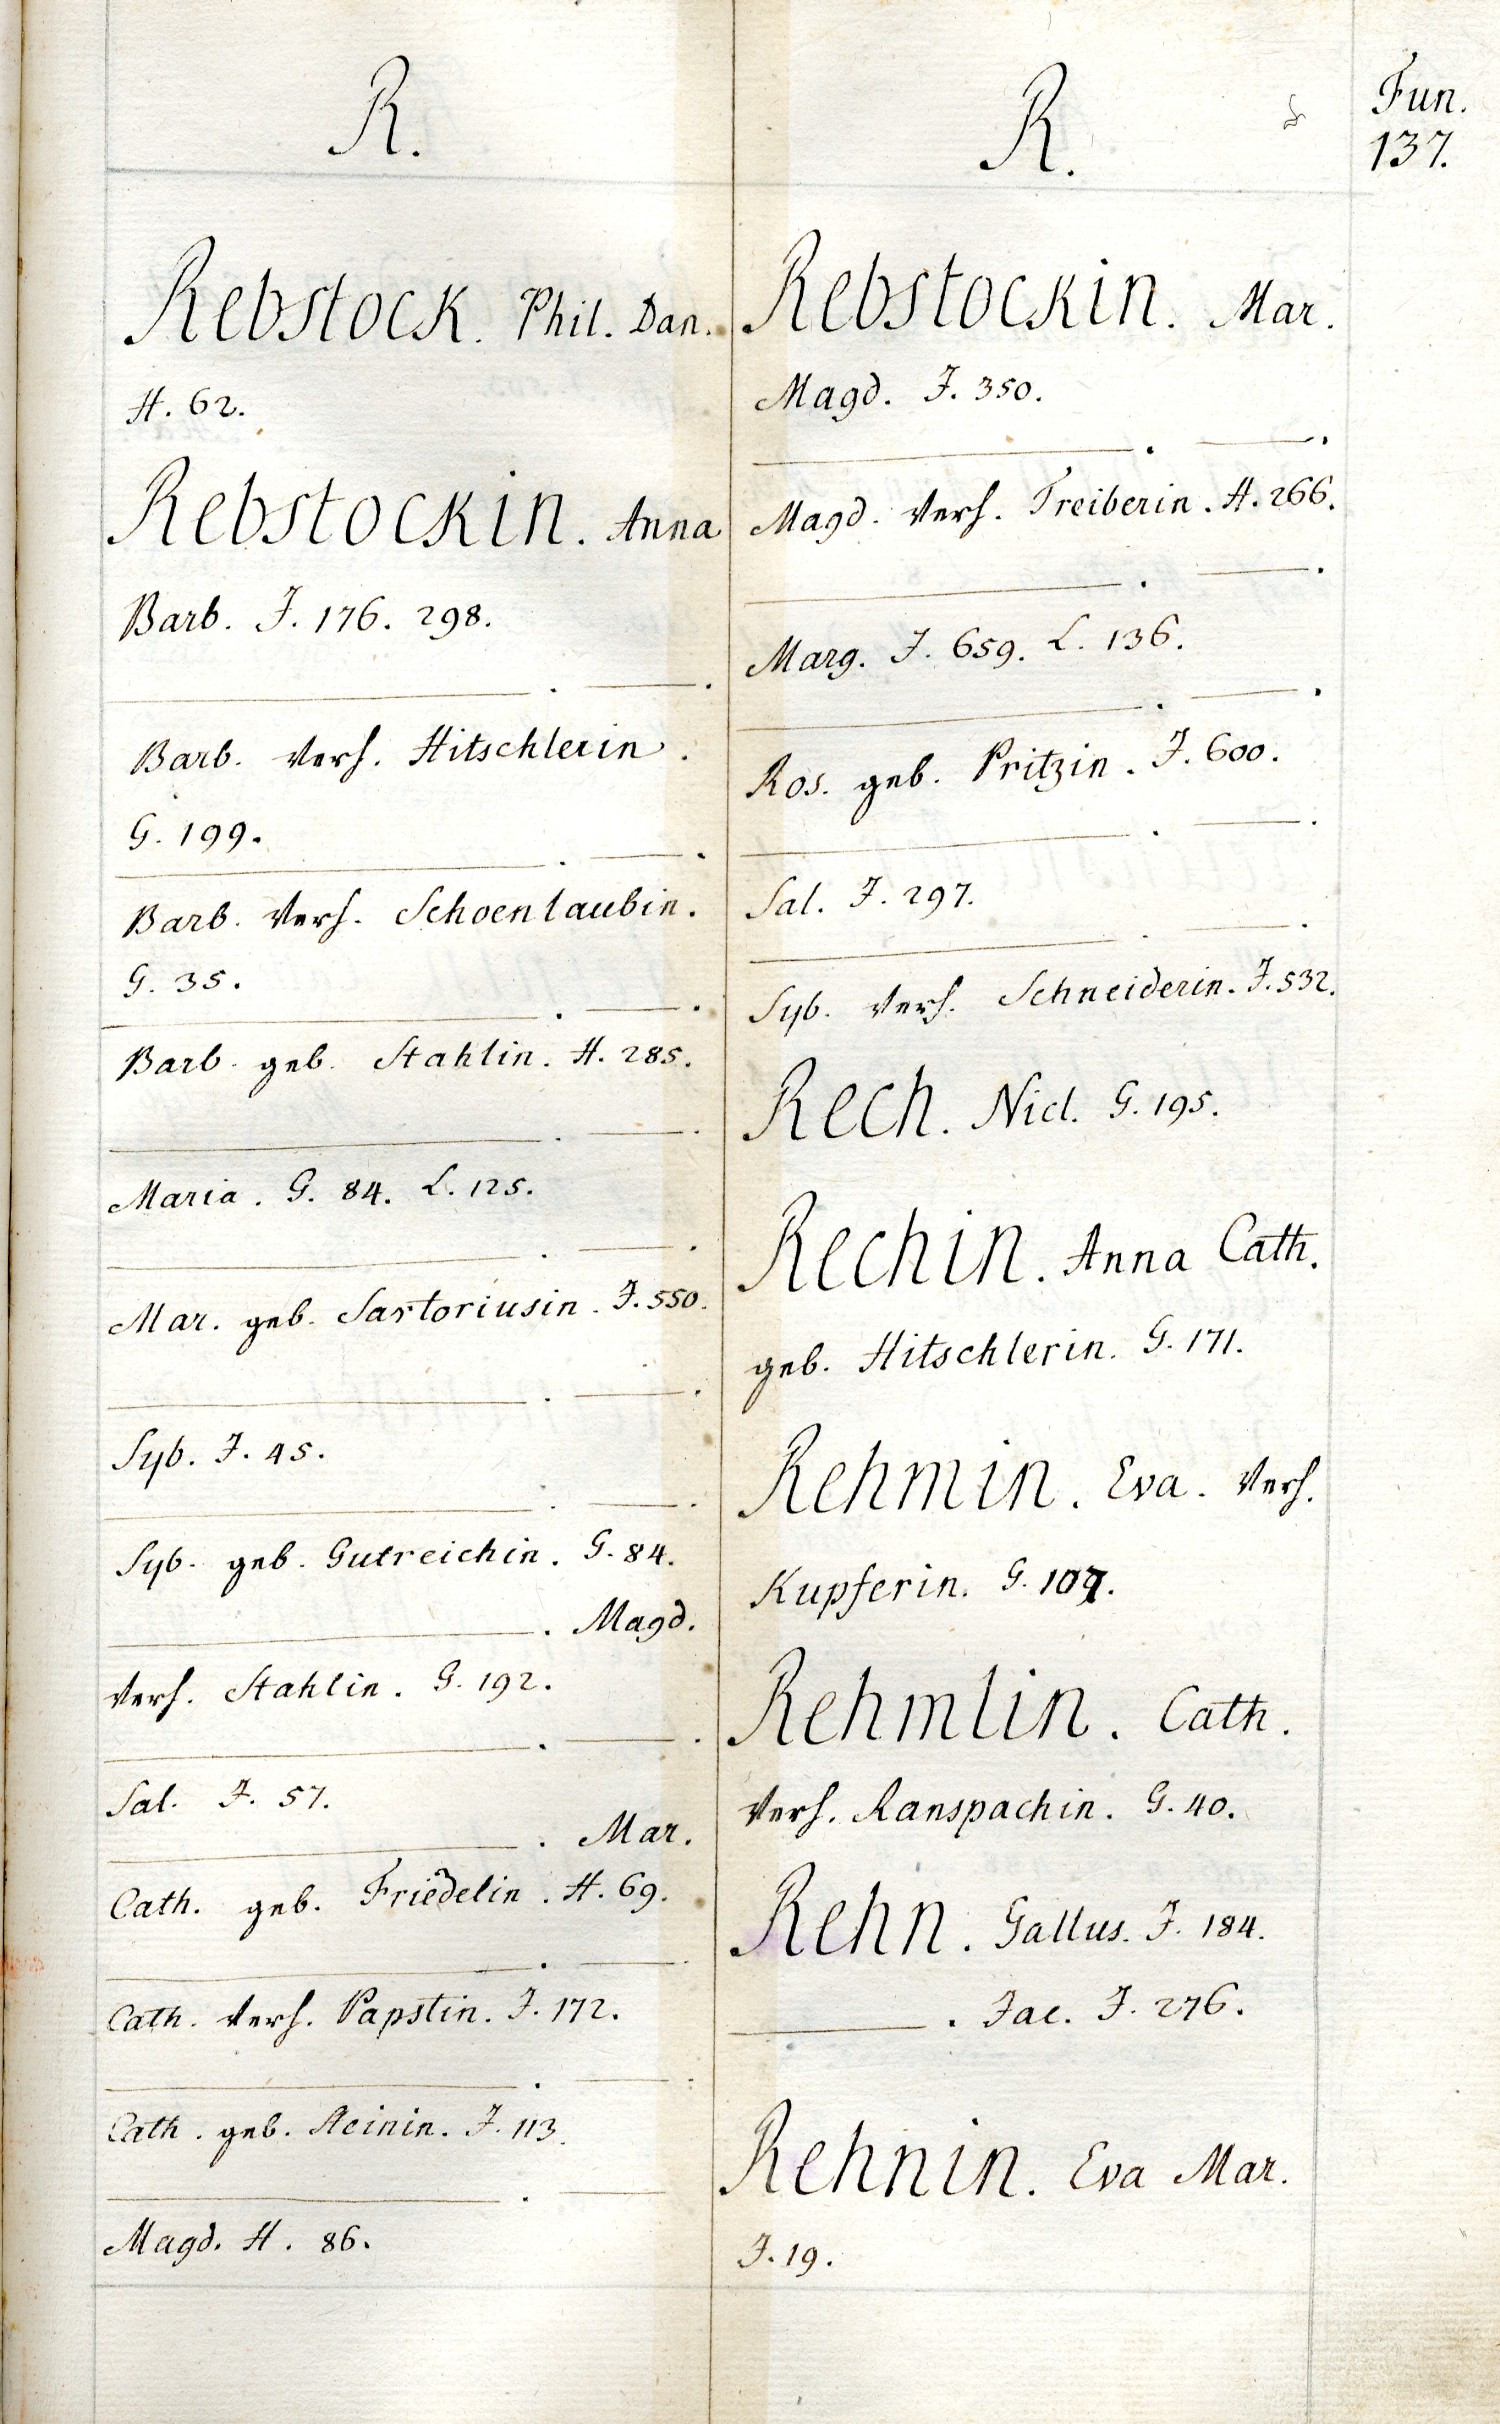 R.
Rebstock. Phil. Dan.
H. 62.
Rebstockin. Anna
Barb. J. 176. 298.
———. ———.
Barb. Verh. Hitschlerin.
G. 199.
———. ———.
Barb. Verh. Schoenlaubin.
G. 35.
———. ———.
Barb. geb. Stahlin. H. 285.
———. ———.
Maria. G. 84. L. 125.
———. ———.
Mar. geb. Sartoriusin. J. 550.
———. ———.
Syb. J. 45.
———. ———.
Syb. geb. Gutreichin. G. 84.
———. Magd.
Verh. Stahlin. G. 192.
———. ———.
Sal. J. 57.
———. Mar.
Cath. geb. Friedelin. H. 69.
———. ———.
Cath. Verh. Papstin. J. 172.
———. ———.
Cath. geb. J. 113.
———. ———
Magd. H. 86.
R.
Rebstockin. Mar.
Magd. J. 350.
———. ———.
Magd. Verh. Treiberin. H. 266.
———. ———.
Marg. J. 659. L. 136.
———. ———.
Ros. geb. Pritzin. J. 600.
———. ———.
Sal. J. 297.
———. ———.
Syb. Verh. Schneiderin. J. 532.
Rech. Nicl. G. 195.
Rechin. Anna Cath.
geb. Hitschlerin. G. 171.
Rehmin. Eva. Verh.
Kupferin. G. 107.
Rehmlin. Cath.
Verh. Ranspachin. G. 40.
Rehn. Gallus. J. 184.
———. Jac. J. 276.
Rehnin. Eva Mar.
J. 19.
Fun.
137.